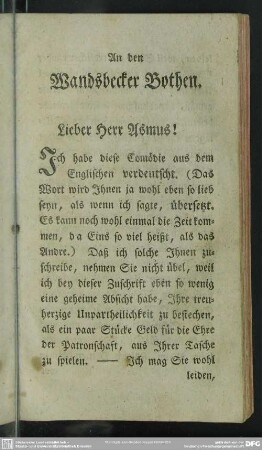 An den
Wandsbecker Bothen.
Lieber Herr Asmus!
Ich habe diese Comödie aus dem
Englischen verdeutscht. (Das
Wort wird Ihnen ja wohl eben so lieb
seyn, als wenn ich sagte, übersetzt.
Es kann noch wohl einmal die Zeit kom-
men, da Eins so viel heißt, als das
Andre.) Daß ich solche Ihnen zu-
schreibe, nehmen Sie nicht übel, weil
ich bey dieser Zuschrift eben so wenig
eine geheime Absicht habe, Ihre treu-
herzige Unpartheilichkeit zu bestechen,
als ein paar Stücke Geld für die Ehre
der Patronschaft, aus Ihrer Tasche
zu spielen. —— Ich mag Sie wohl
leiden,